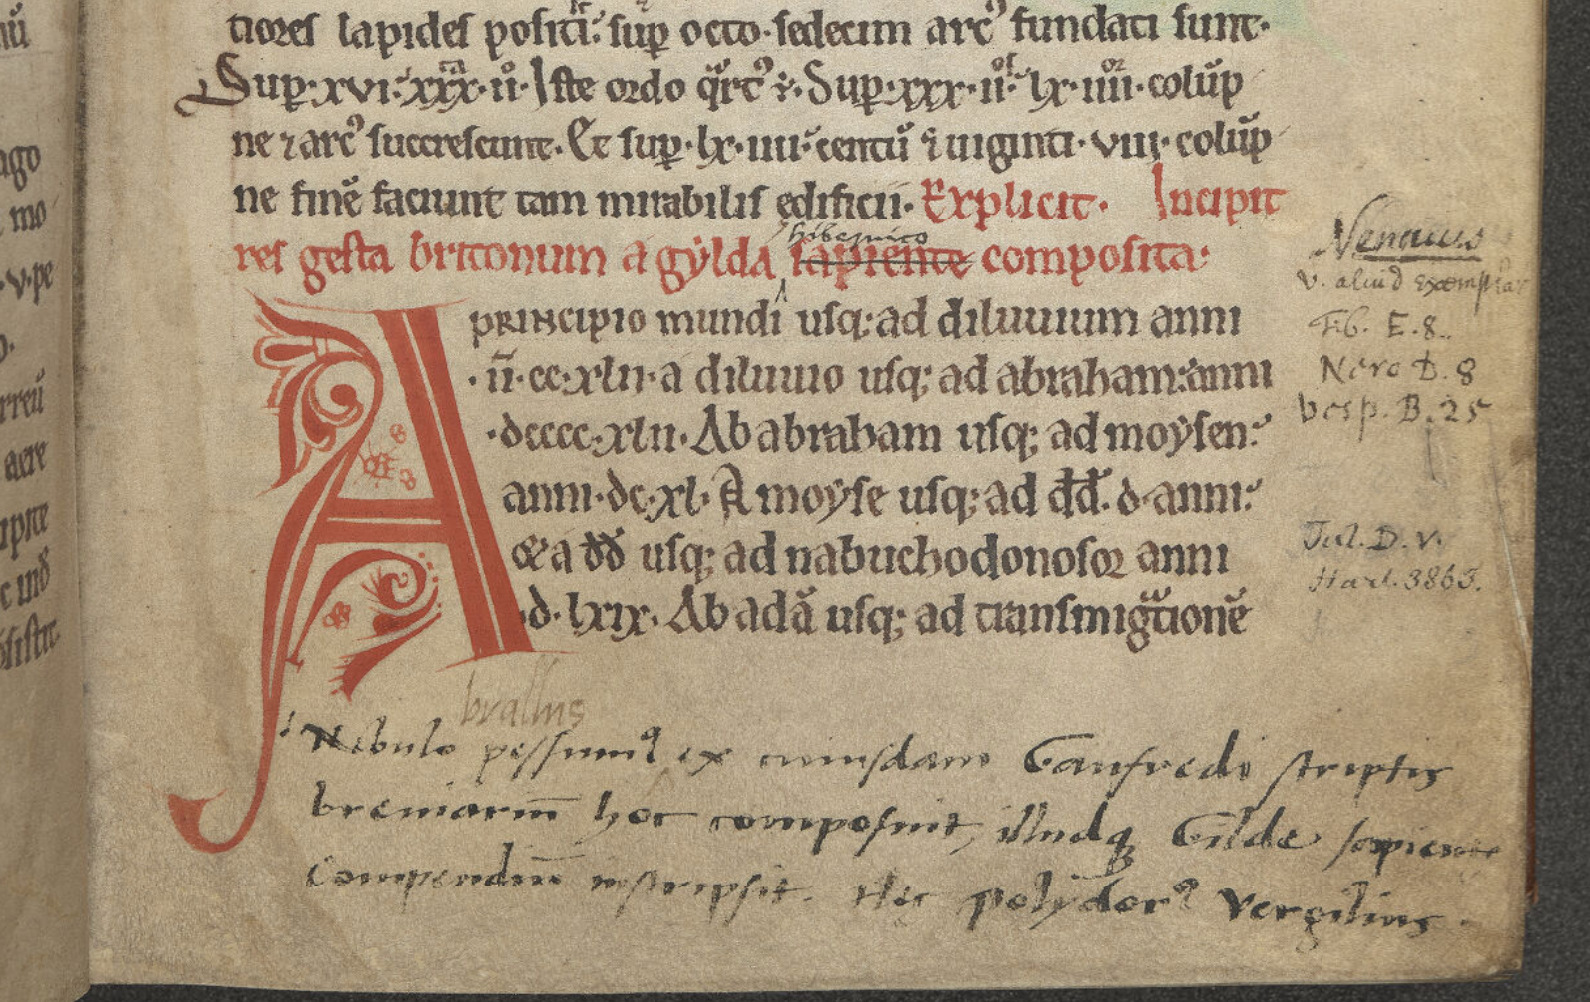 tiores lapides positi. sup octo. sedecim arc fundati sunt.
Sup. xvi. xxx. ii. Iste ordo qrt. Sup. xxx. ii. lx. iiii. colūp
ne ⁊ arc succrescunt. Et sup. lx. iiii. centū ⁊ uiginti. viii. colūp
ne finē faciunt tam mirabilis edificii. Explicit. Incipit
hibernico
res gesta britonum a gylda sapiente composita.
A principio mundi usq; ad diluuium anni
.ii. cc. xlii. a diluuio usq; ad abraham: anni
.dcccc. xlii. Ab abraham usq; ad moysen.
anni. dc. xl. A moyse usq; ad dd. d. anni.
& a dd usq; ad nabuchodonosor anni
.d. lxix. Ab adā usq; ad transmigtionē
Nennius
v. aliud exemplar
Tib. E. 8.
Nero D. 8
Vesp. B. 25
Jul. D. V.
Harl. 3863.
brallus
Nebulo pessimꝰ ex cuiusdam Ganfredi scriptis
breuiariū hoc composuit, illudq Gilde sapientis
Compendiū inscripsit. Hec polydorꝰ Vergilius.
ago
mo
v. pe
rreū
aere